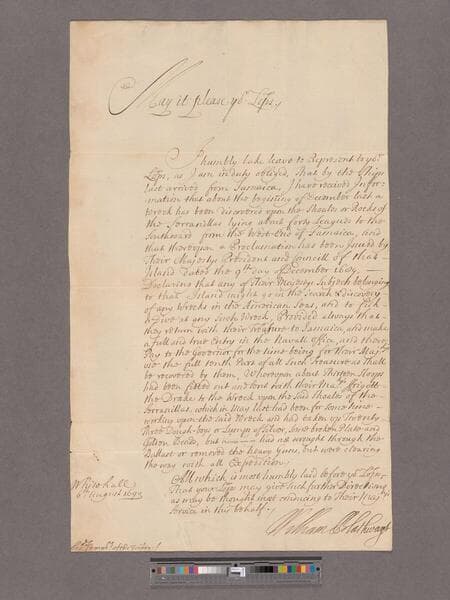 May it please yor. Lops.,
I humbly take leave to Represent to yor.
Lops, as I am in duty obliged, That by the Ships
last arrived from Jamaica, I have received Infor=
mation that about the begining of December last a
wreck has been discovered upon the Shoales or Rocks of
the Serranillas lying about forty Leagues to the
Southward from the West End of Jamaica, And
that thereupon a Proclamation has been Issued by
Their Majestys President and Councill of that
Island dated the 9th. day of December
Declaring that any of Their Majestys Subjects belonging
to that Island might go in the Search & discovery
of any Wrecks in the American Seas, and to fish
& dive at any such Wreck, Provided always that
they return with their Treasure to Jamaica, and make
a full and true Entry in the Navall Office, and there
Pay to the Governor for the time being for Their Majts.
use the full tenth Part of all Such Treasure as Shall
be recovered by them, Whereupon about Thirteen Sloops
had been fitted out and sent with their Mats. ffrigatt
the Drake to the Wreck upon the said Shoales of the
Serranillas, which in May last had been for some time
working upon the said Wreck and had taken up Twenty
Three Dough-boys or Lumps of Silver, some broken Plate and
Beads, but had not wrought through the
Ballast or removed the heavy Guns, but were clearing
the way with all Expedition.
All which is most humbly laid before yor Lops,
That your Lops may give such further Directions
as may be thought most conducing to Their Mats.
Service in this behalf.
Whitehall
August
William Blathwayt